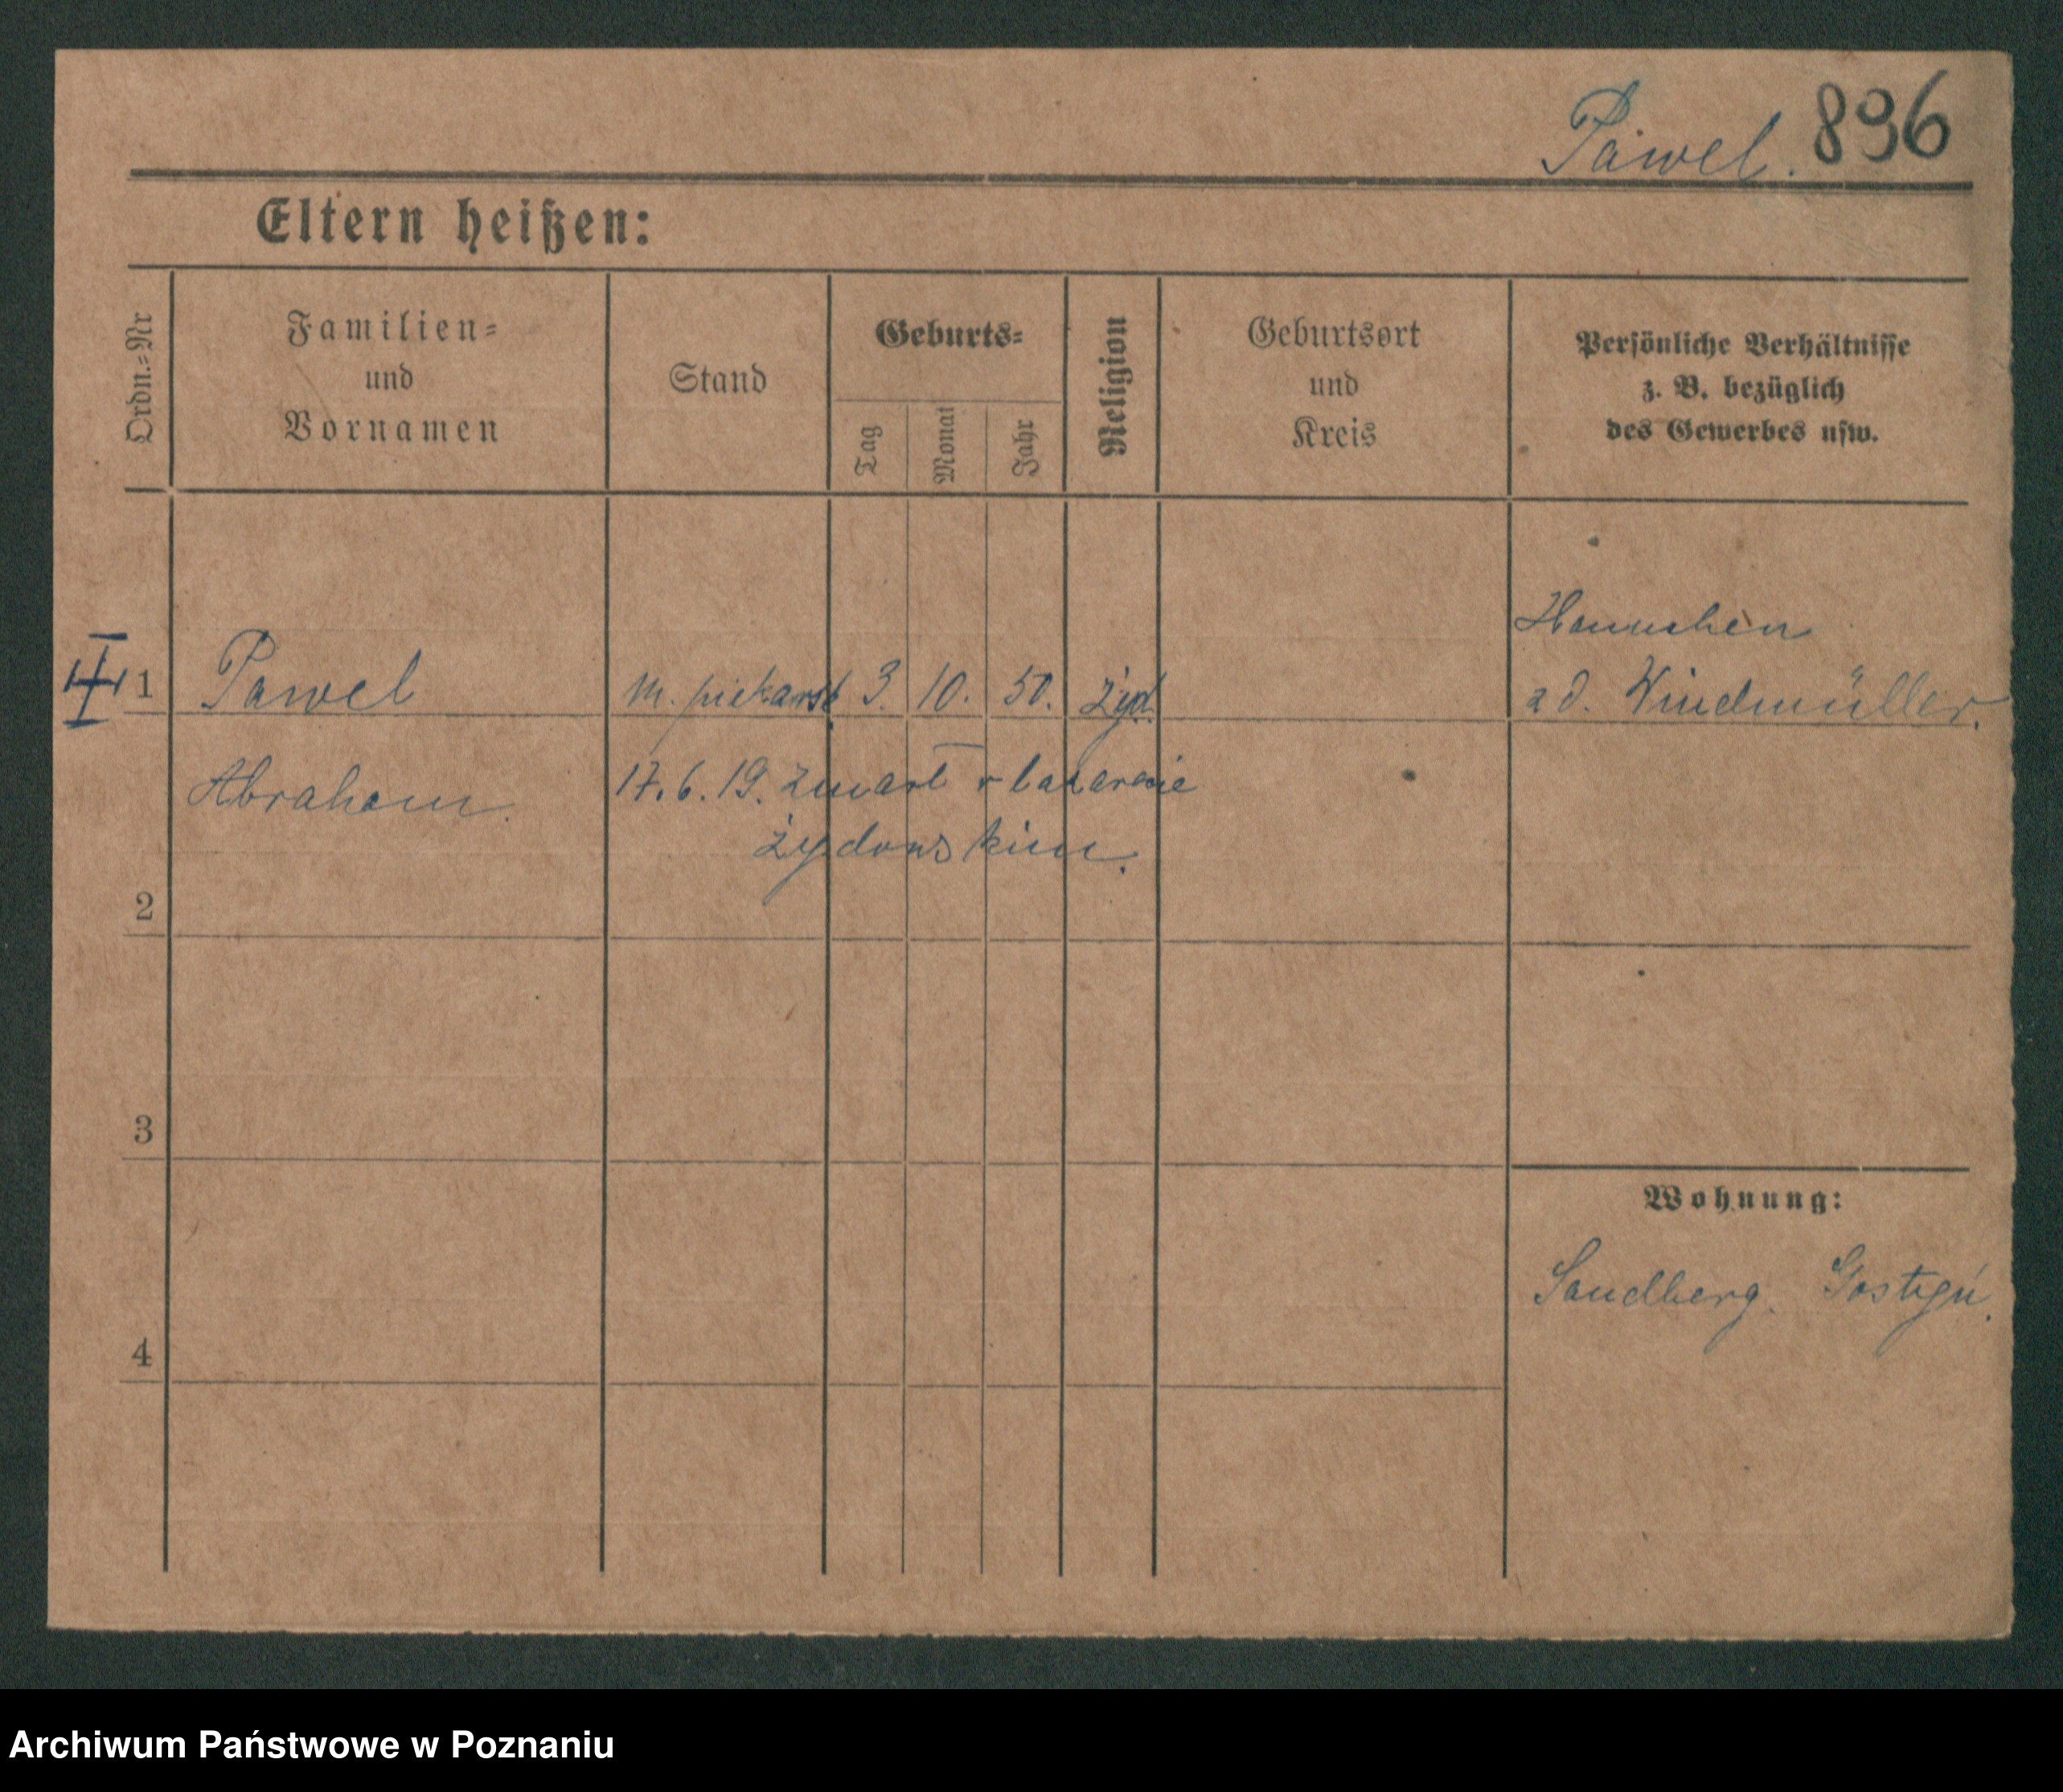 Pawel. 896
Eltern heißen:
Ordn.=Nr
Familien=
und
Vornamen
Stand
Geburts=
Tag
Monat
Jahr
Religion
Geburtsort
und
Kreis
Persönliche Verhältnisse
z. B. bezüglich
des Gewerbes usw.
Hannchen
1 Pawel m. piekarsk. 3. 10. 50. żyd. zd. Windmüller.
Abraham. 17.6.19. zmarł w lazarecie
żydowskim.
2
3
Wohnung:
Sandberg. Gostyń.
4
Archiwum Państwowe w Poznaniu